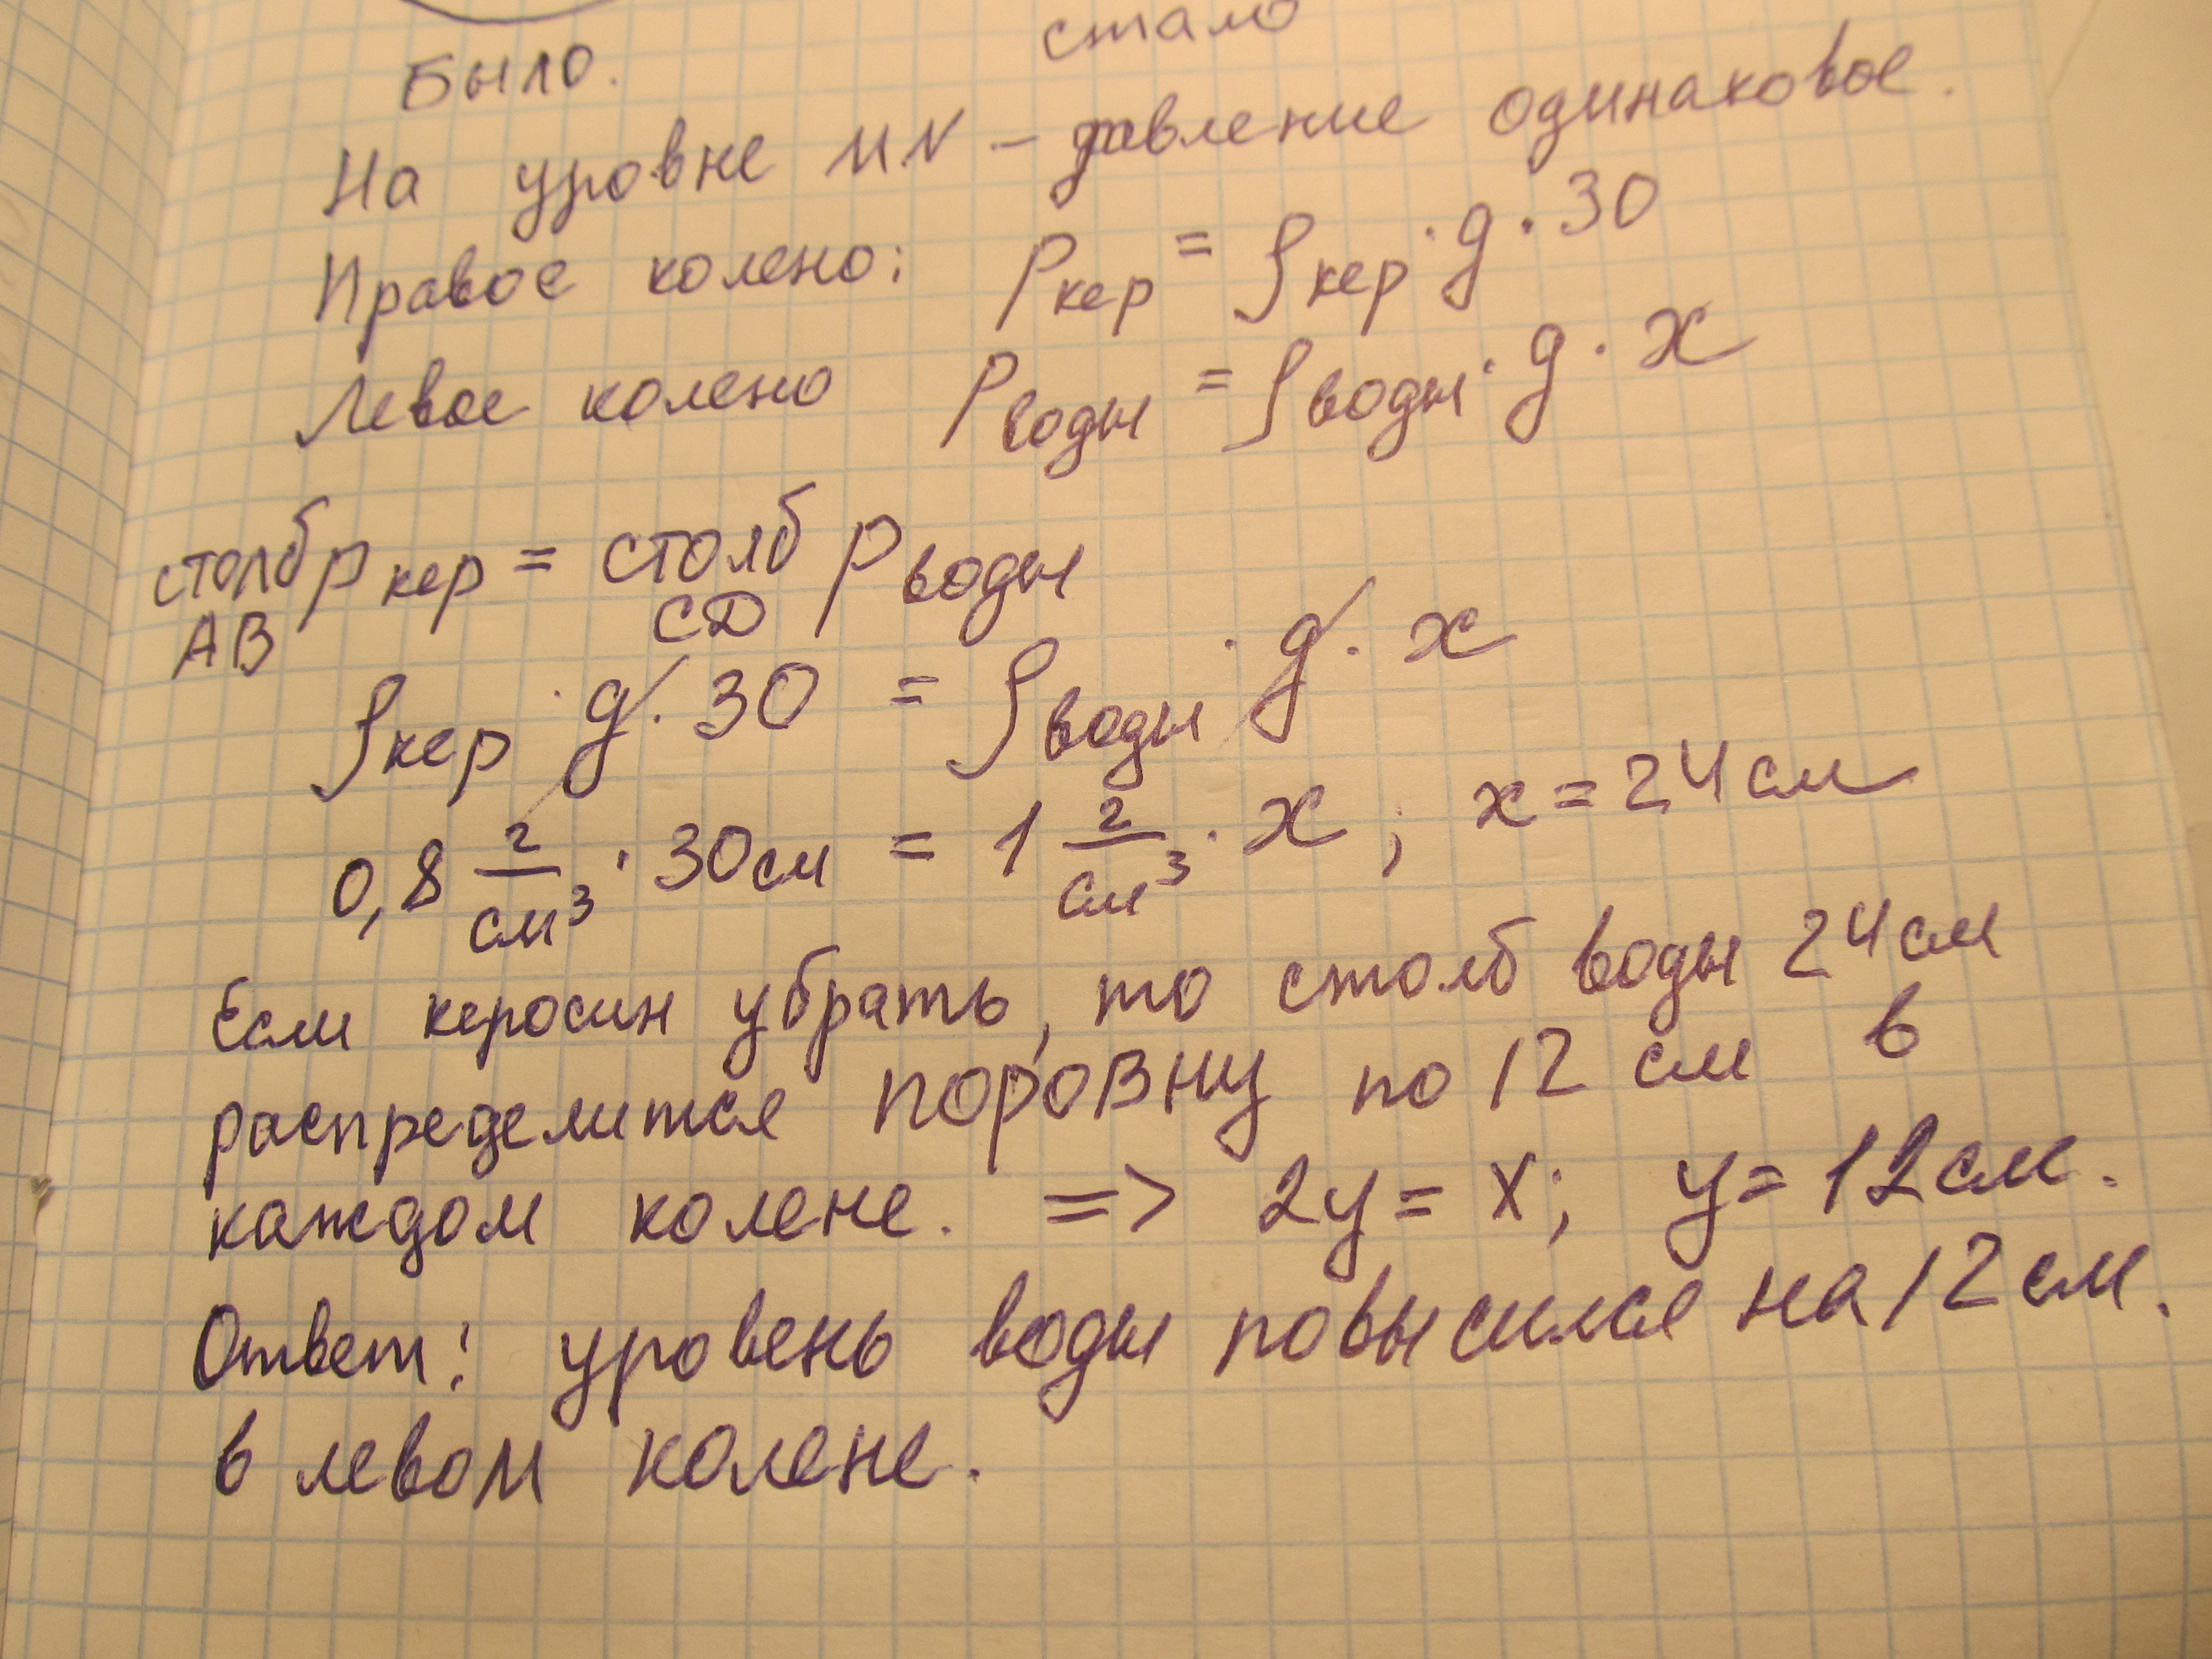 Было.
стало
На уровне MN – давление одинаковое.
Правое колено: Pкер = ρкер · g · 30
Левое колено Pводы = ρводы · g · x
столб Pкер = столб Pводы
AB CD
ρкер · g · 30 = ρводы · g · x
0,8 г/см³ · 30см = 1 г/см³ · x ; x = 24см
Если керосин убрать, то столб воды 24см
распределится поровну по 12 см в
каждом колене. => 2y = x; y = 12см.
Ответ: уровень воды повысился на 12см.
в левом колене.